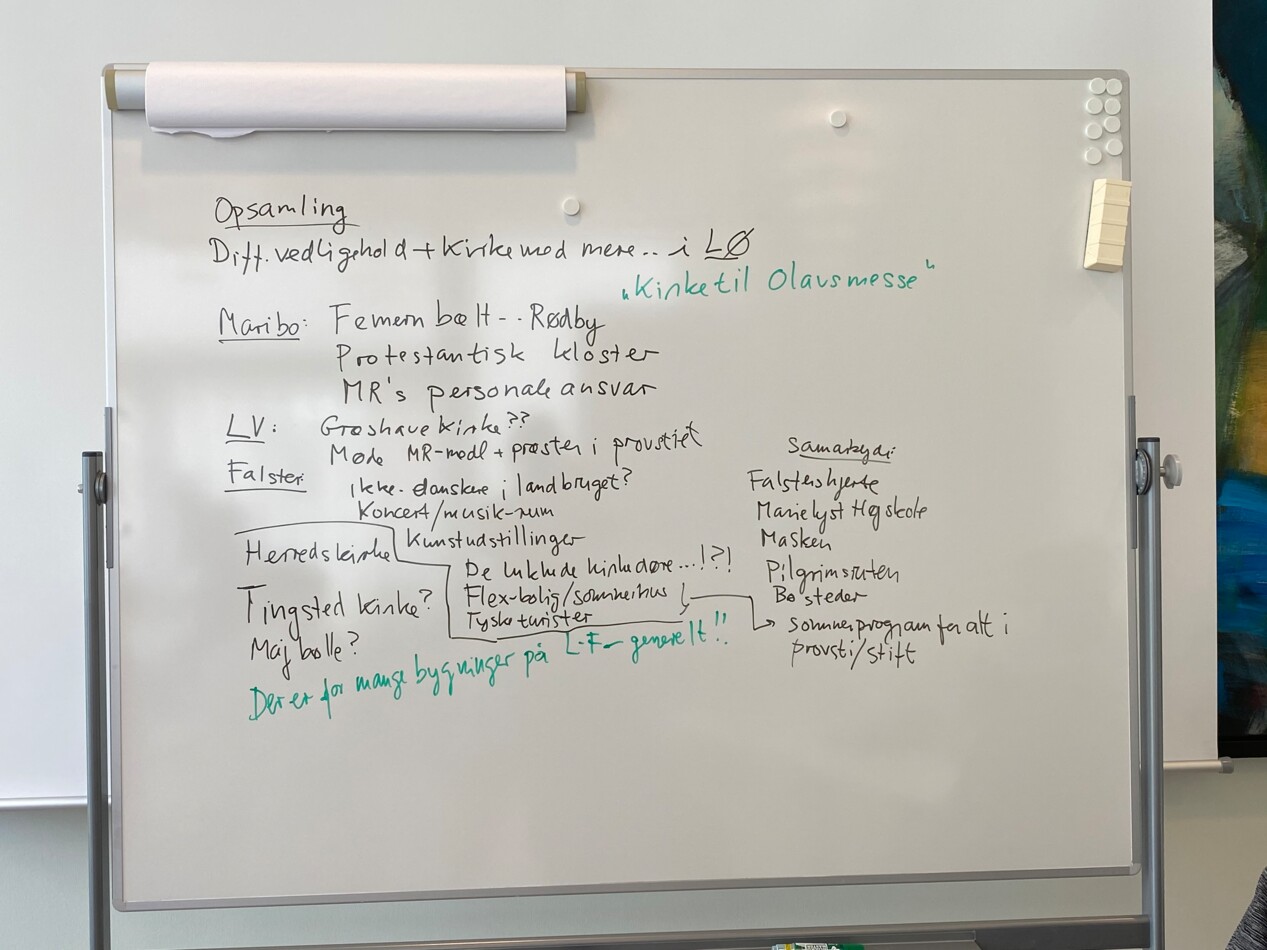 Opsamling
Diff. vedligehold + Kirke med mere.. i LØ
"Kirke til Olavsmesse"
Maribo: Femern bælt - - Rødby
Protestantisk kloster
MR's personaleansvar
LV: Græshave Kirke??
Møde MR-medl + præster i provstiet
Falster: Ikke-danskere i landbruget?
Koncert/musik-rum
Kunstudstillinger
Herredskirke
De lukkede kirkedøre...!?!
Flex-bolig/sommerhus
Tyske turister
Tingsted kirke?
Majbølle?
Der er for mange bygninger på L-F - generelt!!
Samarbejde:
Falsters hjerte
Marielyst Højskole
Masken
Pilgrimsruten
Bosteder
Sommerprogram for alt i
provsti/stift